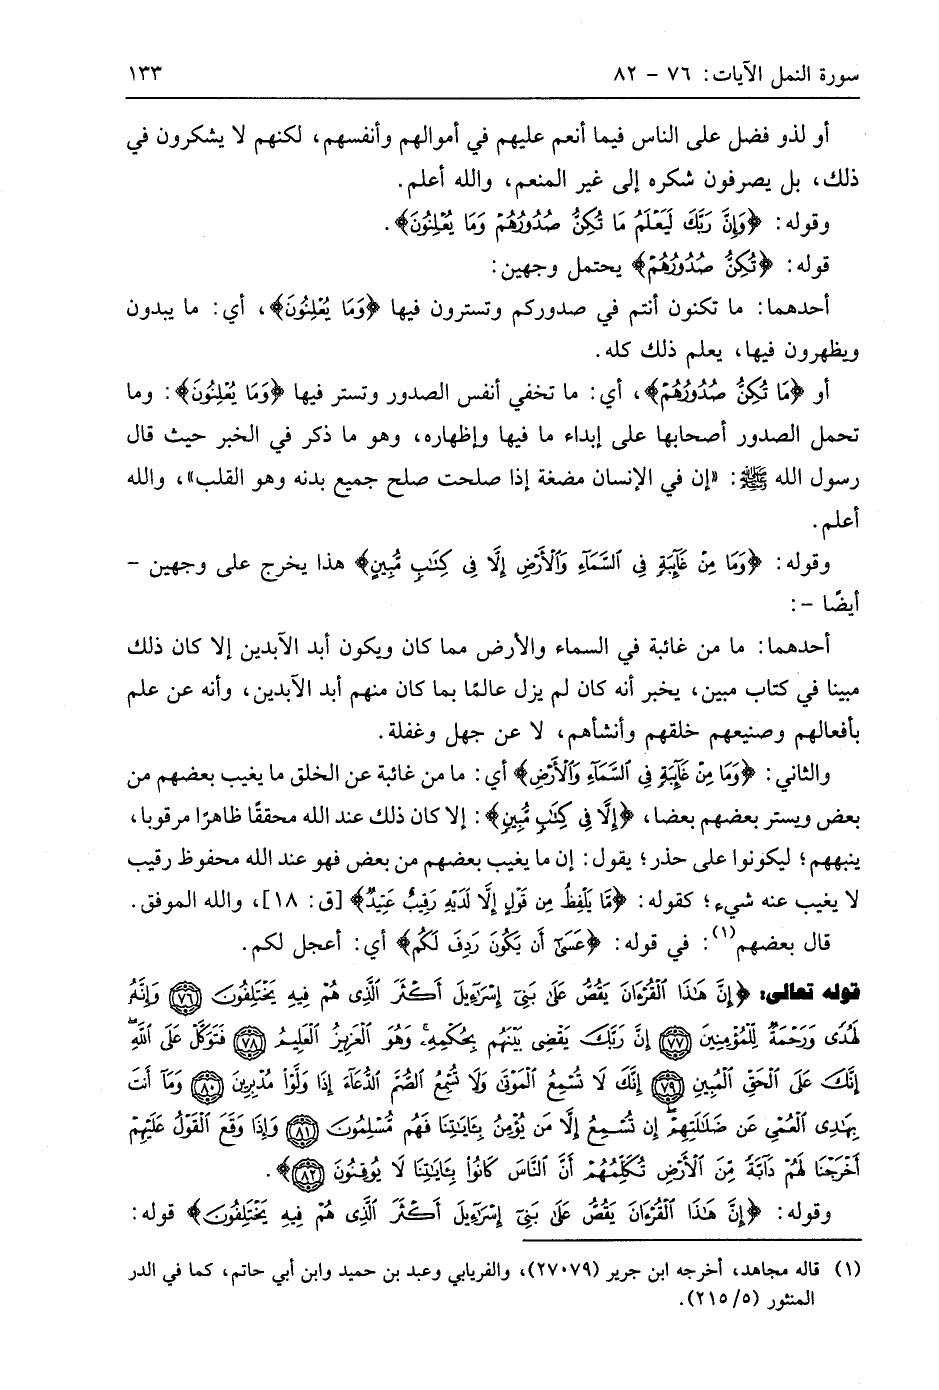 سورة النمل الآيات: ٧٦ - ٨٢ ١٣٣
أو لذو فضل على الناس فيما أنعم عليهم في أموالهم وأنفسهم، لكنهم لا يشكرون في
ذلك، بل يصرفون شكره إلى غير المنعم، والله أعلم.
وقوله: ﴿وَإِنَّ رَبَّكَ لَيَعْلَمُ مَا تُكِنُّ صُدُورُهُمْ وَمَا يُعْلِنُونَ﴾.
قوله: ﴿تُكِنُّ صُدُورُهُمْ﴾ يحتمل وجهين:
أحدهما: ما تكنون أنتم في صدوركم وتسترون فيها ﴿وَمَا يُعْلِنُونَ﴾، أي: ما يبدون
ويظهرون فيها، يعلم ذلك كله.
أو ﴿مَا تُكِنُّ صُدُورُهُمْ﴾، أي: ما تخفي أنفس الصدور وتستر فيها ﴿وَمَا يُعْلِنُونَ﴾: وما
تحمل الصدور أصحابها على إبداء ما فيها وإظهاره، وهو ما ذكر في الخبر حيث قال
رسول الله ﷺ: «إن في الإنسان مضغة إذا صلحت صلح جميع بدنه وهو القلب»، والله
أعلم.
وقوله: ﴿وَمَا مِنْ غَآئِبَةٍ فِى ٱلسَّمَآءِ وَٱلْأَرْضِ إِلَّا فِى كِتَٰبٍ مُّبِينٍ﴾ هذا يخرج على وجهين -
أيضًا -:
أحدهما: ما من غائبة في السماء والأرض مما كان ويكون أبد الآبدين إلا كان ذلك
مبينا في كتاب مبين، يخبر أنه كان لم يزل عالمًا بما كان منهم أبد الآبدين، وأنه عن علم
بأفعالهم وصنيعهم خلقهم وأنشأهم، لا عن جهل وغفلة.
والثاني: ﴿وَمَا مِنْ غَآئِبَةٍ فِى ٱلسَّمَآءِ وَٱلْأَرْضِ﴾ أي: ما من غائبة عن الخلق ما يغيب بعضهم من
بعض ويستر بعضهم بعضا، ﴿إِلَّا فِى كِتَٰبٍ مُّبِينٍ﴾: إلا كان ذلك عند الله محققًا ظاهرًا مرقوبا،
ينبههم؛ ليكونوا على حذر؛ يقول: إن ما يغيب بعضهم من بعض فهو عند الله محفوظ رقيب
لا يغيب عنه شيء؛ كقوله: ﴿مَّا يَلْفِظُ مِن قَوْلٍ إِلَّا لَدَيْهِ رَقِيبٌ عَتِيدٌ﴾ [ق: ١٨]، والله الموفق.
قال بعضهم(١): في قوله: ﴿عَسَىٰٓ أَن يَكُونَ رَدِفَ لَكُم﴾ أي: أعجل لكم.
قوله تعالى: ﴿إِنَّ هَٰذَا ٱلْقُرْءَانَ يَقُصُّ عَلَىٰ بَنِىٓ إِسْرَٰٓءِيلَ أَكْثَرَ ٱلَّذِى هُمْ فِيهِ يَخْتَلِفُونَ ٧٦ وَإِنَّهُۥ
لَهُدًى وَرَحْمَةٌ لِّلْمُؤْمِنِينَ ٧٧ إِنَّ رَبَّكَ يَقْضِى بَيْنَهُم بِحُكْمِهِۦ وَهُوَ ٱلْعَزِيزُ ٱلْعَلِيمُ ٧٨ فَتَوَكَّلْ عَلَى ٱللَّهِ
إِنَّكَ عَلَى ٱلْحَقِّ ٱلْمُبِينِ ٧٩ إِنَّكَ لَا تُسْمِعُ ٱلْمَوْتَىٰ وَلَا تُسْمِعُ ٱلصُّمَّ ٱلدُّعَآءَ إِذَا وَلَّوْا۟ مُدْبِرِينَ ٨٠ وَمَآ أَنتَ
بِهَٰدِى ٱلْعُمْىِ عَن ضَلَٰلَتِهِمْ إِن تُسْمِعُ إِلَّا مَن يُؤْمِنُ بِـَٔايَٰتِنَا فَهُم مُّسْلِمُونَ ٨١ وَإِذَا وَقَعَ ٱلْقَوْلُ عَلَيْهِمْ
أَخْرَجْنَا لَهُمْ دَآبَّةً مِّنَ ٱلْأَرْضِ تُكَلِّمُهُمْ أَنَّ ٱلنَّاسَ كَانُوا۟ بِـَٔايَٰتِنَا لَا يُوقِنُونَ ٨٢﴾.
وقوله: ﴿إِنَّ هَٰذَا ٱلْقُرْءَانَ يَقُصُّ عَلَىٰ بَنِىٓ إِسْرَٰٓءِيلَ أَكْثَرَ ٱلَّذِى هُمْ فِيهِ يَخْتَلِفُونَ﴾ قوله:
(١) قاله مجاهد، أخرجه ابن جرير (٢٧٠٧٩)، والفريابي وعبد بن حميد وابن أبي حاتم، كما في الدر
المنثور (٢١٥/٥).